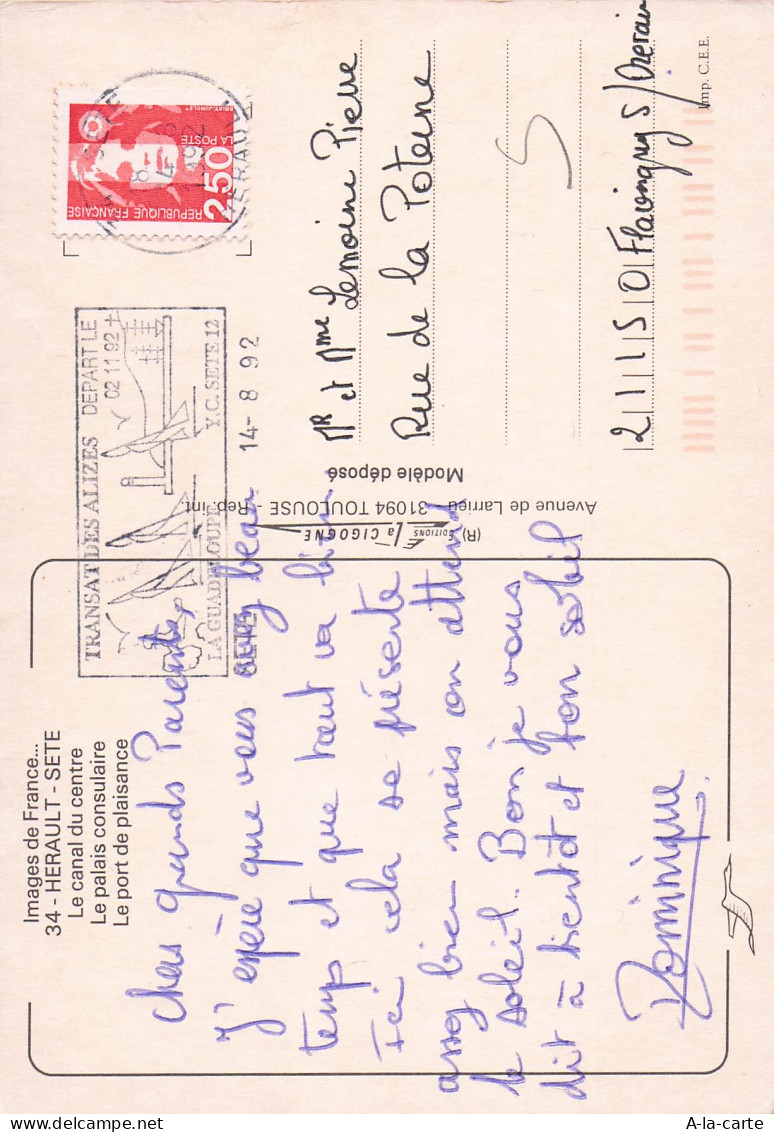 Images de France...
34 - HERAULT - SETE
Le canal du centre
Le palais consulaire
Le port de plaisance
chers grands Parents,
J'espère que vous avez beau
temps et que tout va bien.
Ici cela se présente
assez bien mais on attend
le soleil. Bon je vous
dit à bientôt et bon soleil
Dominique.
EDITIONS La CIGOGNE (R)
Avenue de Larrieu - 31094 TOULOUSE - Rep. int.
Modèle déposé
TRANSAT DES ALIZES DEPART LE
02 11 92
LA GUADELOUPE Y.C. SETE 12
SETE
14-8 92
REPUBLIQUE FRANÇAISE
2,50
LA POSTE
BRIAT-JUMELET
SETE
14 8
1992
HERAULT
MR et Mme Lemoine Pierre
Rue de la Poterne
S
21150 Flavingny S/Ozerain
Imp. C.E.E.
A-la-carte
www.delcampe.net